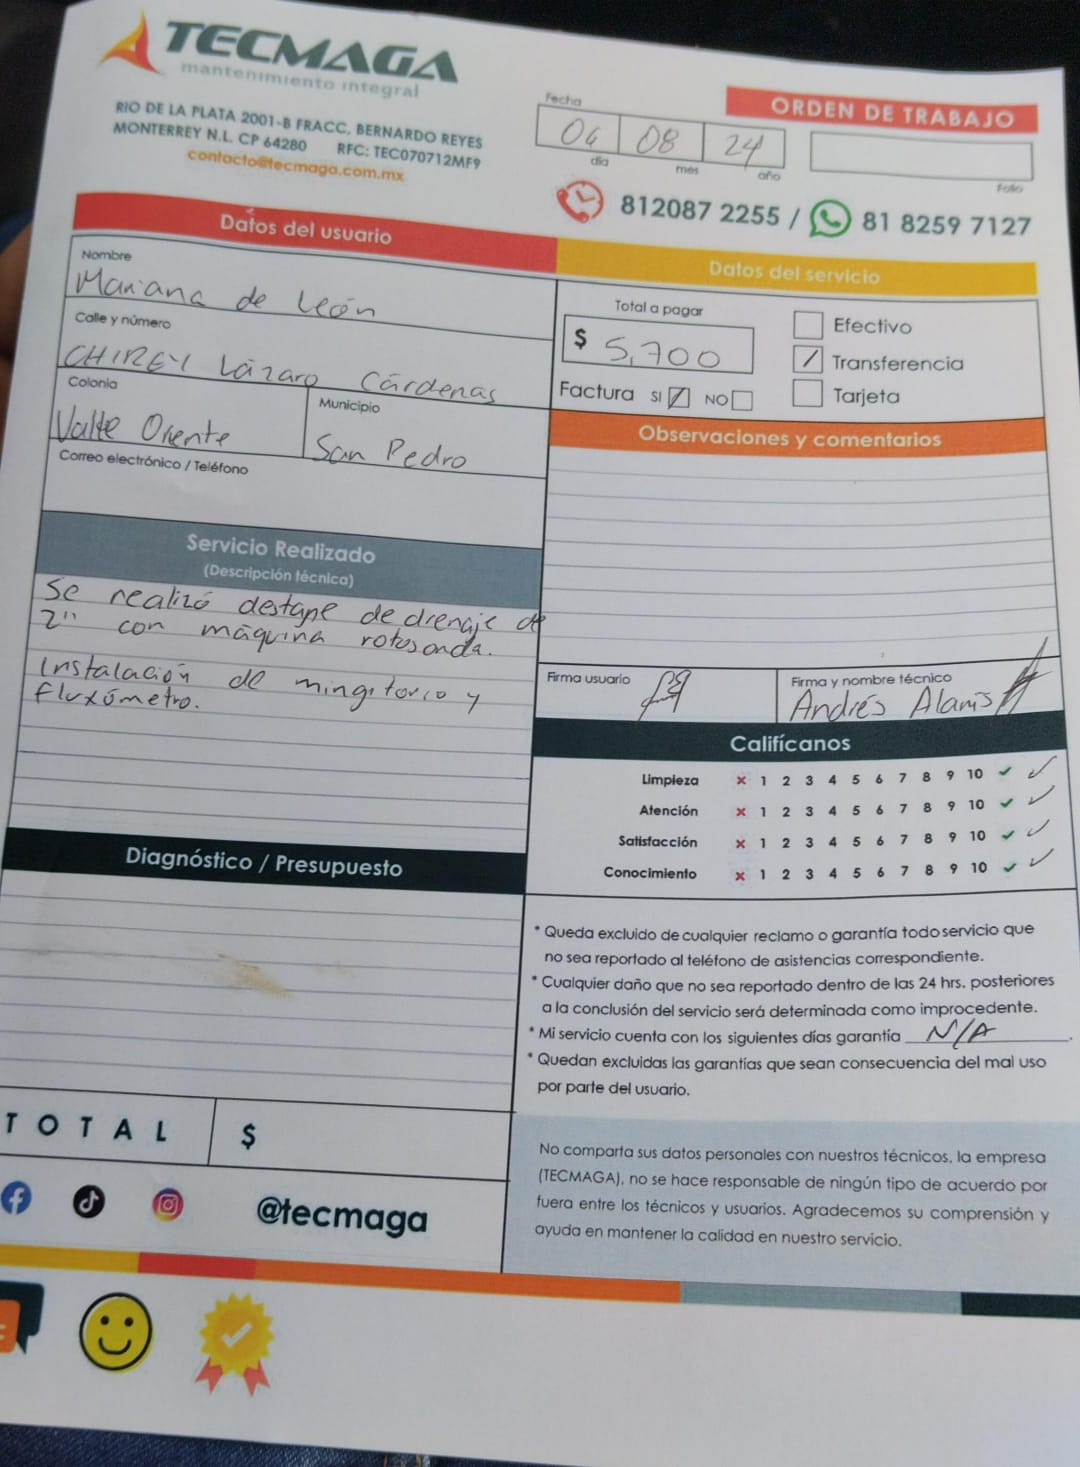 TECMAGA
mantenimiento integral
RIO DE LA PLATA 2001-B FRACC, BERNARDO REYES
MONTERREY N.L. CP 64280 RFC: TEC070712MF9
contacto@tecmaga.com.mx
ORDEN DE TRABAJO
Fecha
08 24
día mes año
Folio
812087 2255 / 81 8259 7127
Datos del usuario
Nombre
Mariana de León
Calle y número
CHIREY Lázaro Cárdenas
Colonia
Valle Oriente
Municipio
San Pedro
Correo electrónico / Teléfono
Datos del servicio
Total a pagar
$ 5,700
Efectivo
/ Transferencia
Tarjeta
Factura SI / NO
Observaciones y comentarios
Servicio Realizado
(Descripción técnica)
Se realizó destape de drenaje de
2" con máquina rotosonda.
Instalación de mingitorio y
fluxómetro.
Firma usuario
Firma y nombre técnico
Andrés Alanis
Califícanos
Limpieza × 1 2 3 4 5 6 7 8 9 10 ✓ ✓
Atención × 1 2 3 4 5 6 7 8 9 10 ✓ ✓
Satisfacción × 1 2 3 4 5 6 7 8 9 10 ✓ ✓
Conocimiento × 1 2 3 4 5 6 7 8 9 10 ✓ ✓
Diagnóstico / Presupuesto
TOTAL $
* Queda excluido de cualquier reclamo o garantía todo servicio que
no sea reportado al teléfono de asistencias correspondiente.
* Cualquier daño que no sea reportado dentro de las 24 hrs. posteriores
a la conclusión del servicio será determinada como improcedente.
* Mi servicio cuenta con los siguientes días garantía N/A.
* Quedan excluidas las garantías que sean consecuencia del mal uso
por parte del usuario.
No comparta sus datos personales con nuestros técnicos, la empresa
(TECMAGA), no se hace responsable de ningún tipo de acuerdo por
fuera entre los técnicos y usuarios. Agradecemos su comprensión y
ayuda en mantener la calidad en nuestro servicio.
@tecmaga